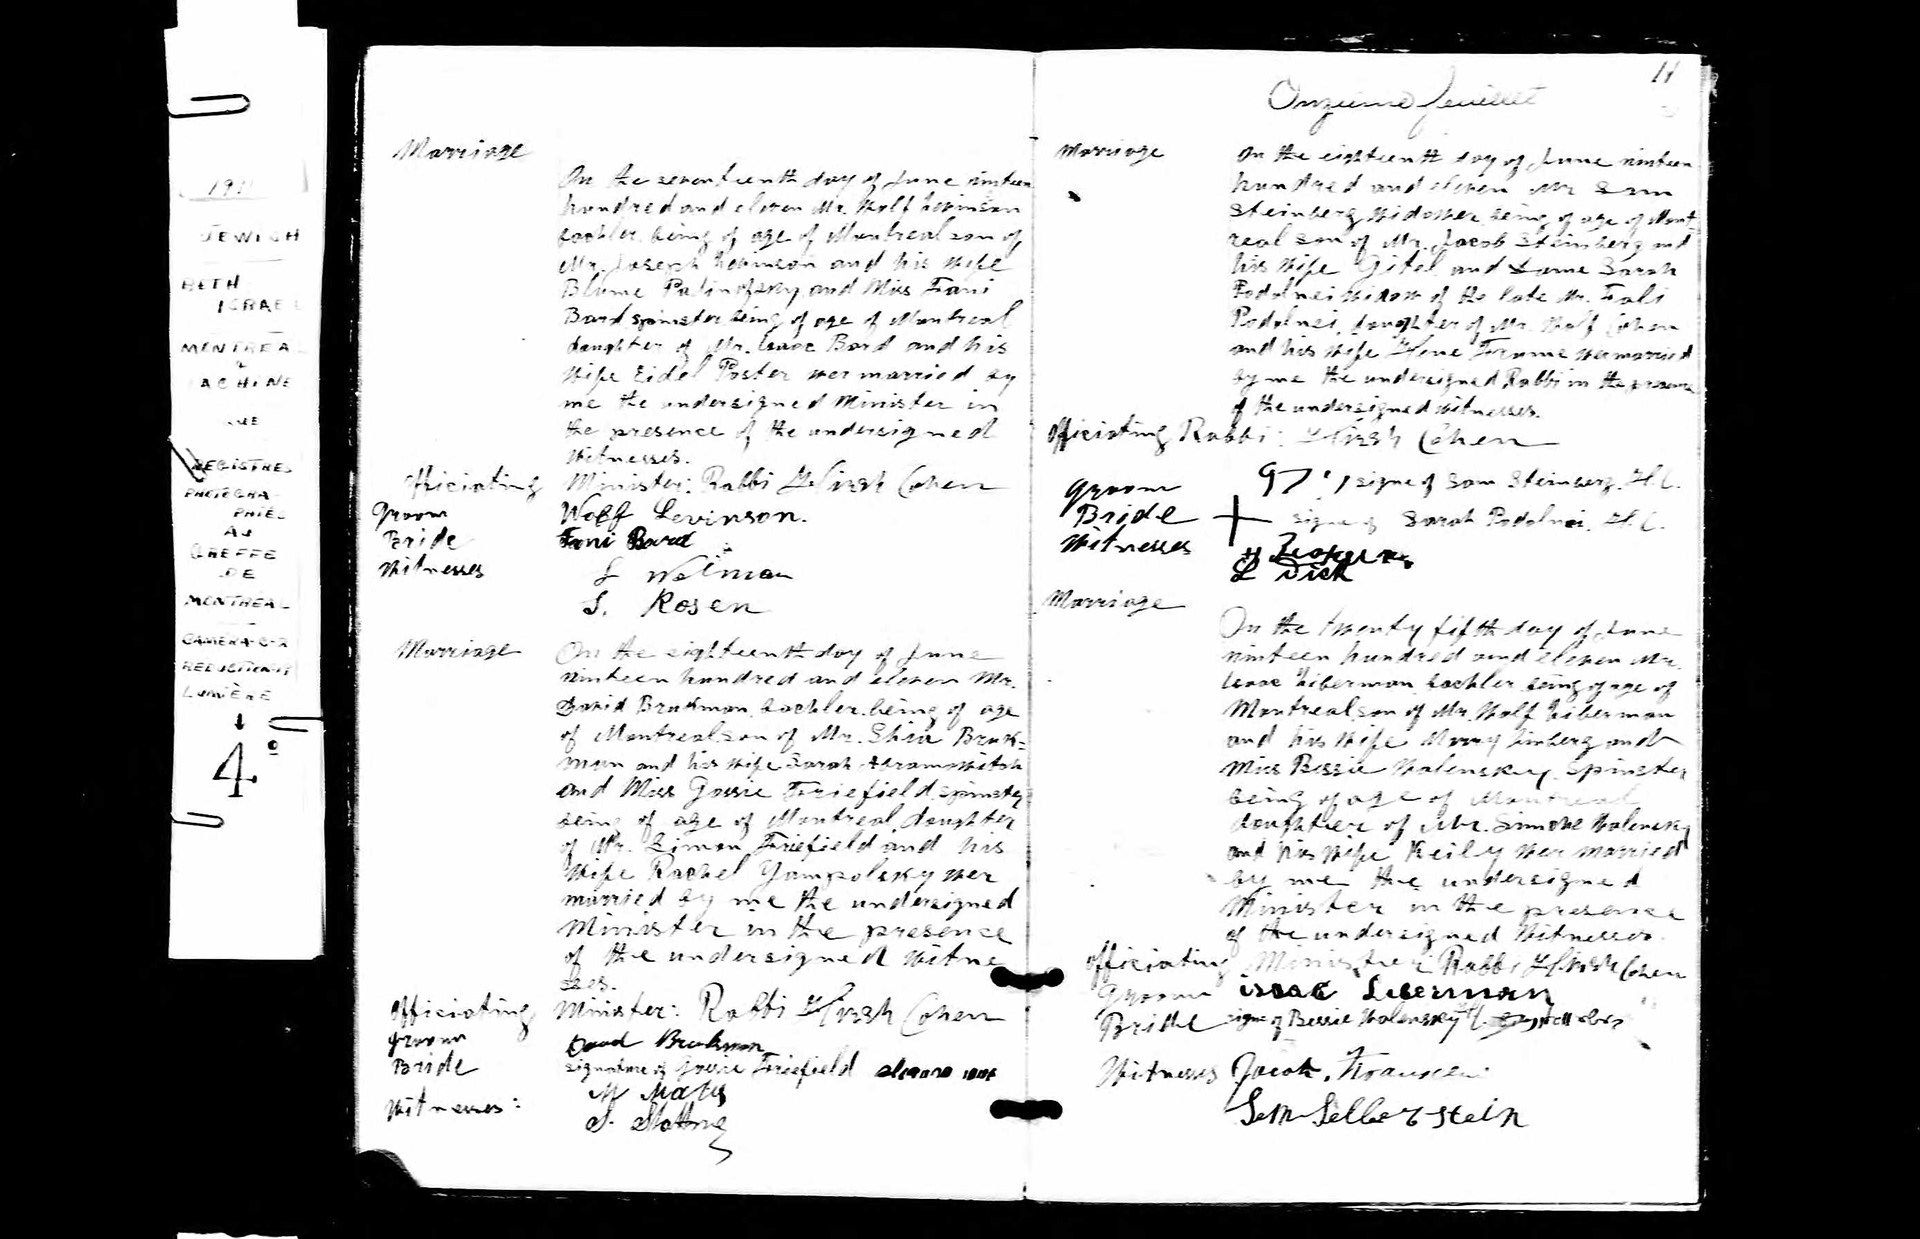 1911
JEWISH
BETH
ISRAEL
MONTREAL
&
LACHINE
REGISTRES
PHOTOGRA
PHIÉS
AU
GREFFE
DE
MONTREAL
CAMERA-C-2
REDUCTION 17
LUMIÈRE
4°
Marriage
On the seventeenth day of June nineteen
hundred and eleven Mr. Wolf Levinson
bachler being of age of Montreal son of
Mr. Joseph Levinson and his wife
Blume Palinofsky and Miss Fani
Bard spinster being of age of Montreal
daughter of Mr. Isaac Bard and his
wife Eidel Poster wer married by
me the undersigned Minister in
the presence of the undersigned
Witnesses.
Officiating Minister: Rabbi Hirsh Cohen
Groom Wolf Levinson.
Bride Fani Bard
Witnesses L Wolman
S. Rosen
Marriage On the eighteenth day of June
nineteen hundred and eleven Mr.
David Brukman bachler being of age
of Montreal son of Mr. Shia Bruk=
man and his wife Sarah Abramowitch
and Miss Gossie Friefield spinster
being of age of Montreal daughter
of Mr. Simon Friefield and his
wife Rachel Yampolsky wer
married by me the undersigned
Minister in the presence
of the undersigned Witne
sses.
Officiating Minister: Rabbi Hirsh Cohen
Groom David Brukman
Bride signature of Gossie Friefield
Witnesses: M Matts
S.
11
Onzieme feuillet
Marriage On the eighteenth day of June nineteen
hundred and eleven Mr Sam
Steinberg Widower being of age of Mont-
real son of Mr. Jacob Steinberg and
his wife Gitel and Dame Sarah
Podolnei widow of the late Mr. Fali
Podolnei, daughter of Mr. Wolf Cohen
and his wife Hene Frume wer married
by me the undersigned Rabbi in the presence
of the undersigned witnesses.
Officiating Rabbi: Hirsh Cohen
Groom signe of Sam Steinberg. H.C.
Bride + signe of Sarah Podolnei. H.C.
Witnesses
L Dick
Marriage
On the twenty fifth day of June
nineteen hundred and eleven Mr.
Isaac Liberman bachler being of age of
Montreal son of Mr. Wolf Liberman
and his wife Marry Linberg and
Miss Bessie Wolensky. Spinster
being of age of Montreal
doughtier of Mr. Simone Wolensky
and his wife Keily wer married
by me the undersigned
Minister in the presence
of the undersigned Witnesses.
Officiating Minister Rabbi Hirsh Cohen
Groom isaac Liberman
Bride signe of Bessie Wolensky H.C.
Witnesses Jacob.
Sam Selberstein